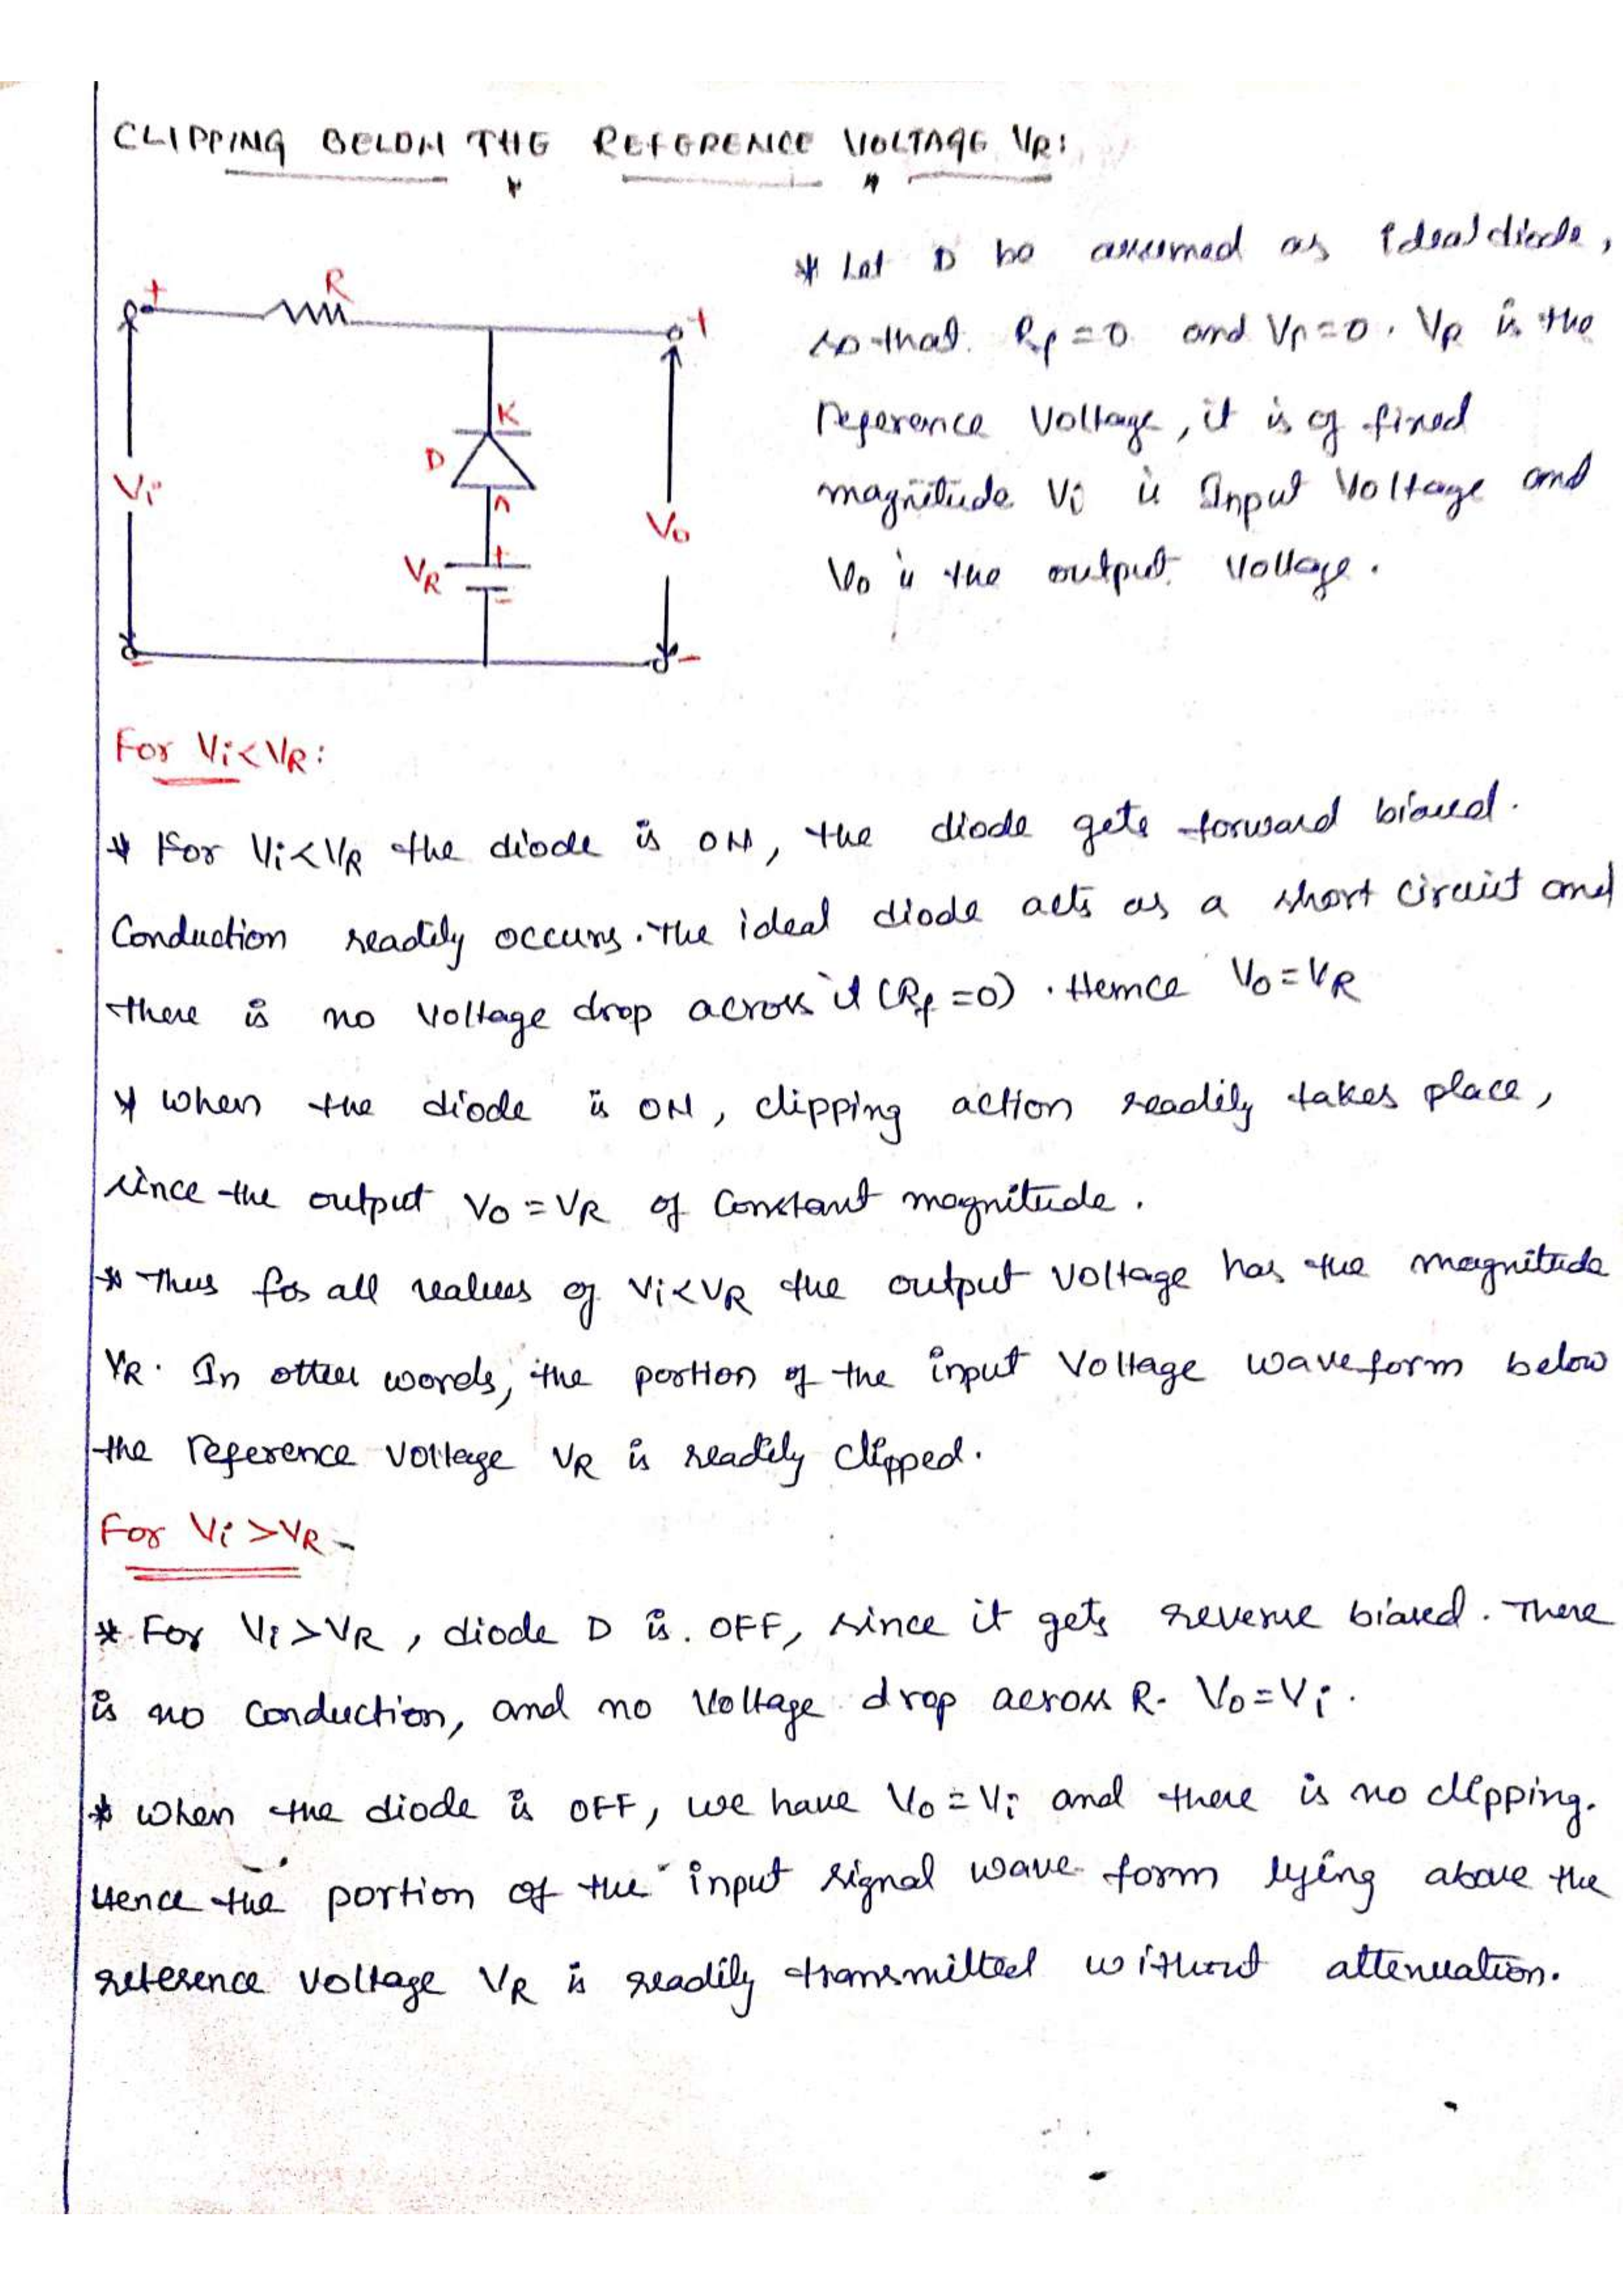 CLIPPING BELOW THE REFERENCE VOLTAGE VR:
* Let D be assumed as ideal diode,
so that Rf = 0 and Vr = 0. VR is the
reference Voltage, it is of fixed
magnitude Vi is Input Voltage and
Vo is the output Voltage.
+ R +
K
D
A
Vi
+
VR
Vo
-
- -
For Vi < VR:
* For Vi < VR the diode is ON, the diode gets forward biased.
Conduction readily occurs. The ideal diode acts as a short circuit and
there is no Voltage drop across it (Rf = 0). Hence Vo = VR
* when the diode is ON, clipping action readily takes place,
since the output Vo = VR of Constant magnitude.
* Thus for all values of Vi < VR the output voltage has the magnitude
VR. In other words, the portion of the input Voltage waveform below
the reference Voltage VR is readily clipped.
For Vi > VR -
* For Vi > VR, diode D is OFF, since it gets reverse biased. There
is no conduction, and no Voltage drop across R. Vo = Vi.
* when the diode is OFF, we have Vo = Vi and there is no clipping.
Hence the portion of the input signal wave form lying above the
reference Voltage VR is readily transmitted without attenuation.